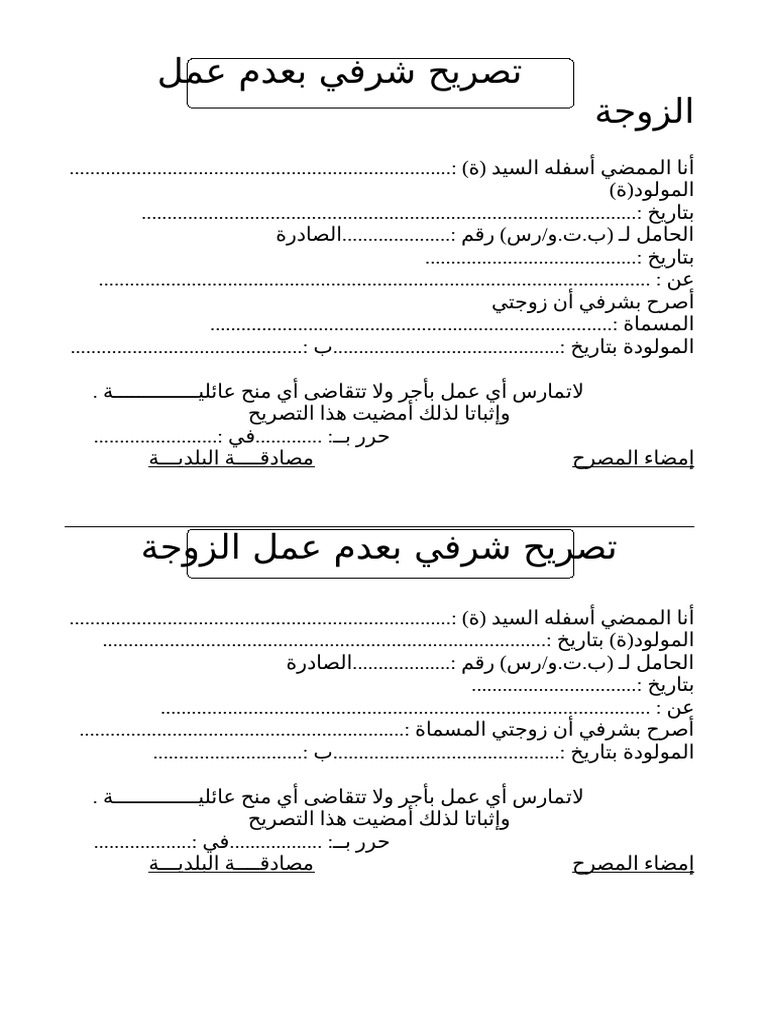 تصريح شرفي بعدم عمل
الزوجة
أنا الممضي أسفله السيد (ة) :..........................................................................
المولود(ة)
بتاريخ :................................................................................................
الحامل لـ (ب.ت.و/رس) رقم :.....................الصادرة
بتاريخ :.........................................
عن : ...........................................................................................................
أصرح بشرفي أن زوجتي
المسماة :..............................................................................
المولودة بتاريخ :............................................ب :.............................................
لاتمارس أي عمل بأجر ولا تتقاضى أي منح عائليــــــــــــــة .
وإثباتا لذلك أمضيت هذا التصريح
حرر بــ: .............في :........................
إمضاء المصرح مصادقــــة البلديـــة
تصريح شرفي بعدم عمل الزوجة
أنا الممضي أسفله السيد (ة) :..........................................................................
المولود(ة) بتاريخ :......................................................................................
الحامل لـ (ب.ت.و/رس) رقم :...................الصادرة
بتاريخ :................................
عن : ...............................................................................................
أصرح بشرفي أن زوجتي المسماة :...............................................................
المولودة بتاريخ :............................................ب :.............................
لاتمارس أي عمل بأجر ولا تتقاضى أي منح عائليــــــــــــــة .
وإثباتا لذلك أمضيت هذا التصريح
حرر بــ: ..................في :...................
إمضاء المصرح مصادقــــة البلديـــة